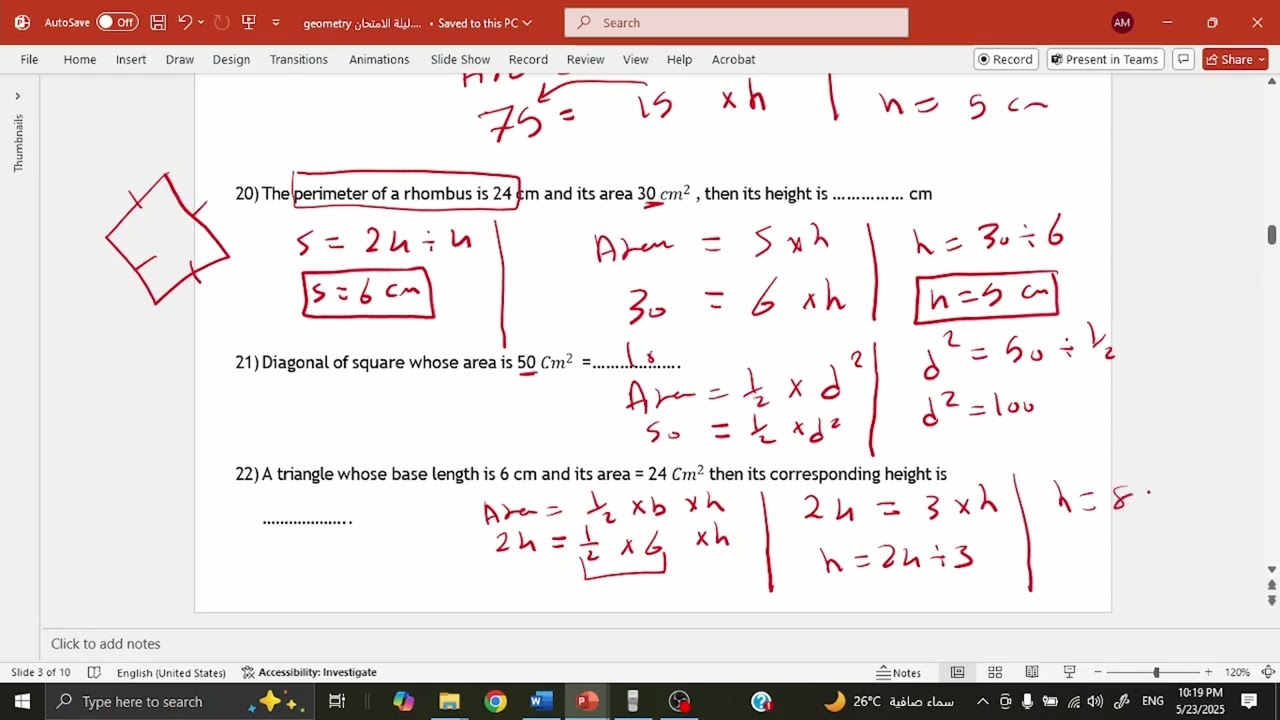 AutoSave Off geometry ليلة الامتحان.... • Saved to this PC Search AM
File Home Insert Draw Design Transitions Animations Slide Show Record Review View Help Acrobat Record Present in Teams Share
Thumbnails
75 = 15 x h h = 5 cm
20) The perimeter of a rhombus is 24 cm and its area 30 cm² , then its height is .............. cm
s = 24 ÷ 4 Area = s x h h = 30 ÷ 6
s = 6 cm 30 = 6 x h h = 5 cm
21) Diagonal of square whose area is 50 Cm² =................... 10
Area = 1/2 x d² d² = 50 ÷ 1/2
50 = 1/2 x d² d² = 100
22) A triangle whose base length is 6 cm and its area = 24 Cm² then its corresponding height is
...................
Area = 1/2 x b x h 24 = 3 x h h = 8
24 = 1/2 x 6 x h h = 24 ÷ 3
Click to add notes
Slide 3 of 10 English (United States) Accessibility: Investigate Notes 120%
Type here to search 26°C سماء صافية ENG 10:19 PM 5/23/2025